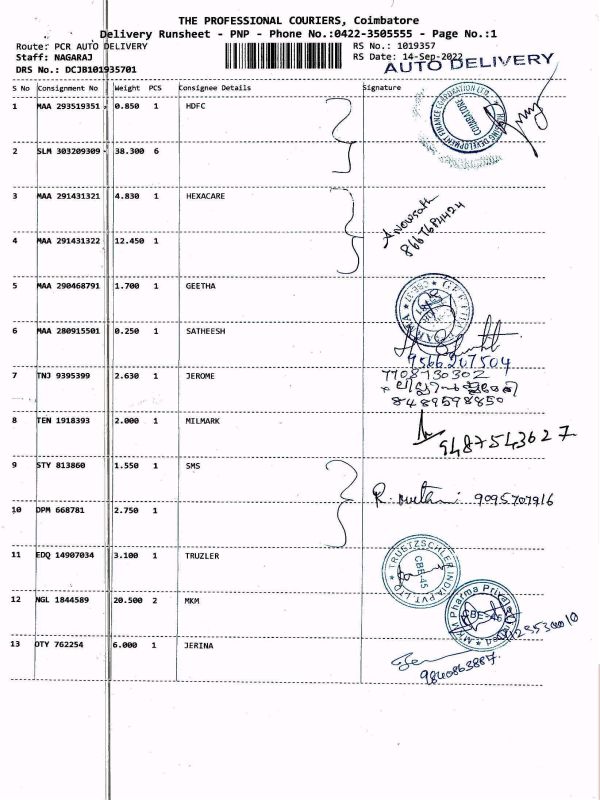 THE PROFESSIONAL COURIERS, Coimbatore
Delivery Runsheet - PNP - Phone No.:0422-3505555 - Page No.:1
Route: PCR AUTO DELIVERY
RS No.: 1019357
Staff: NAGARAJ
RS Date: 14-Sep-2022
DRS No.: DCJB101935701
AUTO DELIVERY
S No Consignment No Weight PCS Consignee Details Signature
1 MAA 293519351 0.850 1 HDFC
HOUSING DEVELOPMENT FINANCE CORPORATION LTD.
COIMBATORE
2 SLM 303209309 38.300 6
3 MAA 291431321 4.830 1 HEXACARE
8667684424
4 MAA 291431322 12.450 1
5 MAA 290468791 1.700 1 GEETHA
6 MAA 280915501 0.250 1 SATHEESH
9566207504
7 TNJ 9395399 2.630 1 JEROME
7708730302
8489598850
8 TEN 1918393 2.000 1 MILMARK
9487543627
9 STY 813860 1.550 1 SMS
9095707916
10 DPM 668781 2.750 1
11 EDQ 14907034 3.100 1 TRUZLER
TRUETZSCHLER INDIA PVT LTD
CBE-45
12 NGL 1844589 20.500 2 MKM
MKM Pharma Private Limited
CBE-46
13 OTY 762254 6.000 1 JERINA
9840863887